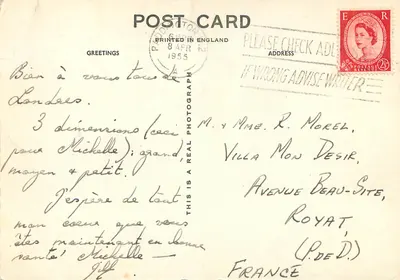 POST CARD
PRINTED IN ENGLAND
GREETINGS
ADDRESS
8 APR
1955
PLEASE CHECK
IF WRONG ADVISE WRITER
E R
2½
THIS IS A REAL PHOTOGRAPH
Bien à vous tous de
Londres.
3 dimensions (ceci
pour Michelle): grand
moyen & petit.
J'espère de tout
mon coeur que vous
êtes maintenant en bonne
santé Michelle —
M. & MME. R. MOREL,
VILLA MON DESIR,
AVENUE BEAU-SITE,
ROYAT,
(P. DE D.)
FRANCE